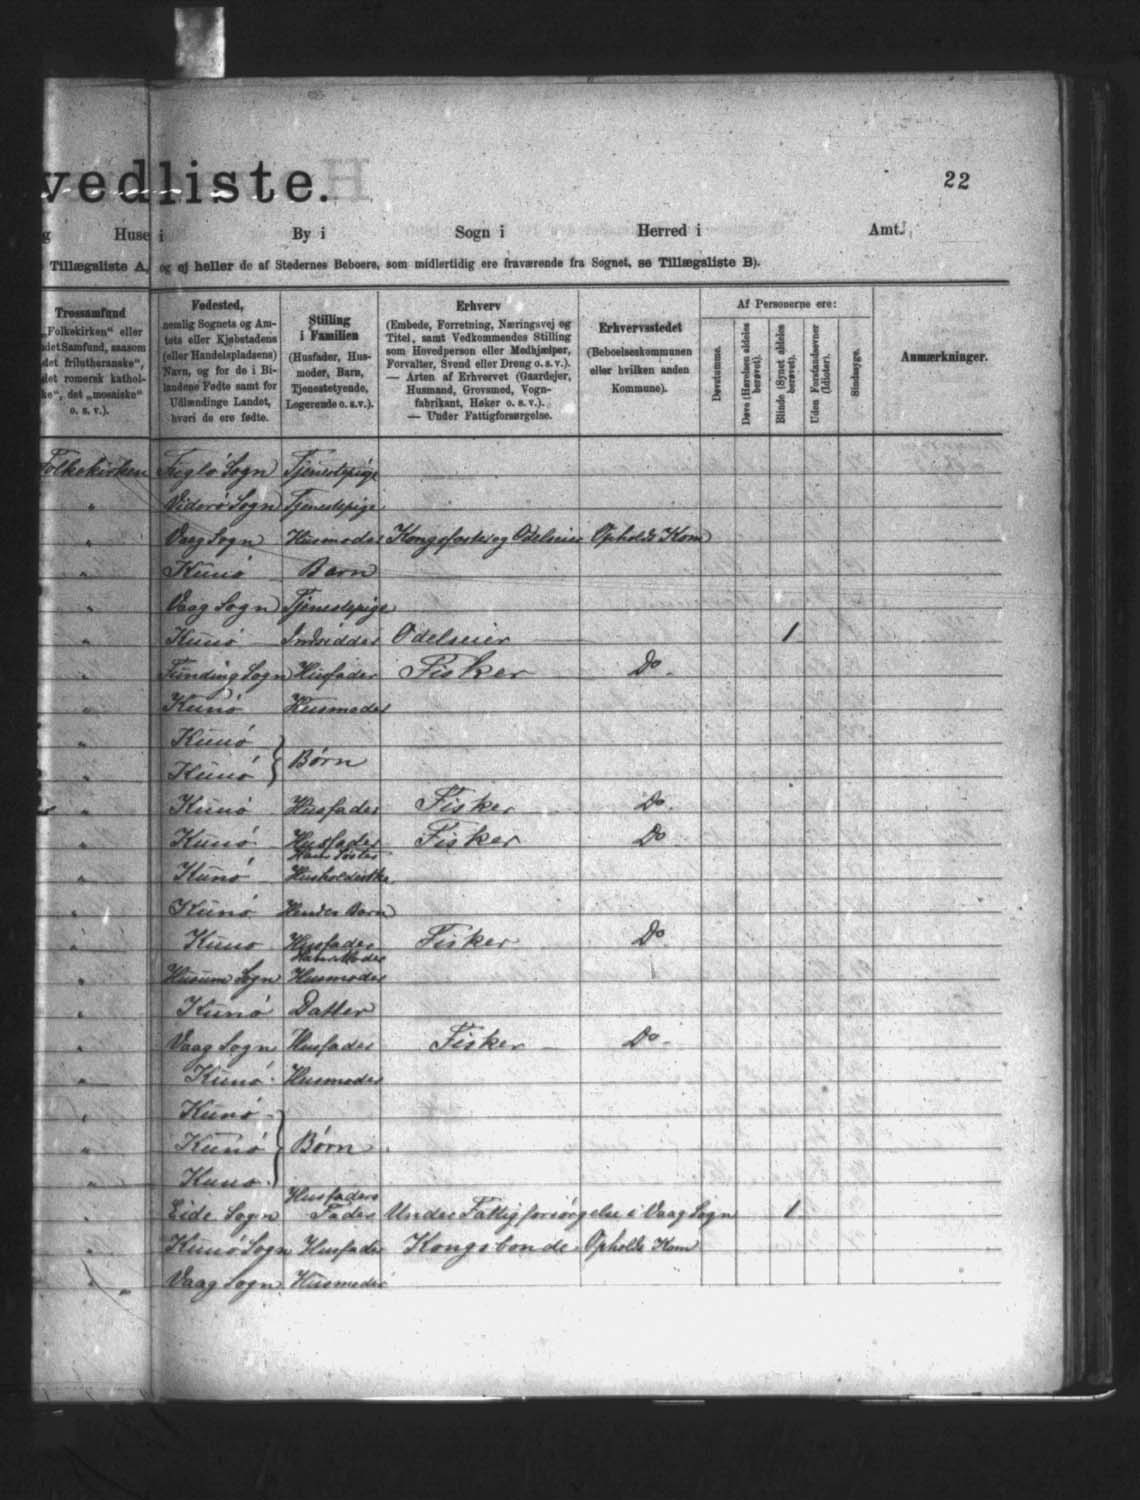 vedliste.
22
Huse i By i Sogn i Herred i Amt.
Tillægsliste A, og ej heller de af Stedernes Beboere, som midlertidig ere fraværende fra Sognet, se Tillægsliste B).
Trossamfund
„Folkekirken“ eller
det Samfund, saasom
det frilutheranske“,
det romersk kathol-
ke“, det „mosaiske“
o. s. v.).
Fødested,
nemlig Sognets og Am-
tets eller Kjøbstadens
(eller Handelspladsens)
Navn, og for de i Bi-
landene Fødte samt for
Udlændinge Landet,
hvori de ere fødte.
Stilling
i Familien
(Husfader, Hus-
moder, Barn,
Tjenestetyende,
Logerende o. s. v.).
Erhverv
(Embede, Forretning, Næringsvej og
Titel, samt Vedkommendes Stilling
som Hovedperson eller Medhjælper,
Forvalter, Svend eller Dreng o. s. v.).
— Arten af Erhvervet (Gaardejer,
Husmand, Grovsmed, Vogn-
fabrikant, Høker o. s. v.).
— Under Fattigforsørgelse.
Erhvervsstedet
(Beboelseskommunen
eller hvilken anden
Kommune).
Af Personerne ere:
Døvstumme.
Døve (Hørelsen aldeles berøvet).
Blinde (Synet aldeles berøvet).
Uden Forstandsevner (Idioter).
Sindssyge.
Anmærkninger.
Folkekirken Fuglø Sogn Tjenestepige
" Viderø Sogn Tjenestepige
" Vaag Sogn Husmoder Kongsfæster og Odelseier Opholds Kom
" Kunø Barn
" Vaag Sogn Tjenestepige
" Kunø Indsidder Odelseier 1
" Funding Sogn Husfader Fisker Do
" Kunø Husmoder
" Kunø
" Kunø } Børn
" Kunø Husfader Fisker Do
" Kunø Husfader Fisker Do
Hans Søster
" Kunø Husholderske
" Kunø Hendes Barn
" Kunø Husfader Fisker Do
Hans Moder
" Husum Sogn Husmoder
" Kunø Datter
" Vaag Sogn Husfader Fisker Do
" Kunø Husmoder
" Kunø
" Kunø } Børn
" Kunø
Husfaders
" Eide Sogn Fader Under Fattigforsørgelse i Vaag Sogn 1
" Kunø Sogn Husfader Kongsbonde Opholds Kom
" " Vaag Sogn Husmoder